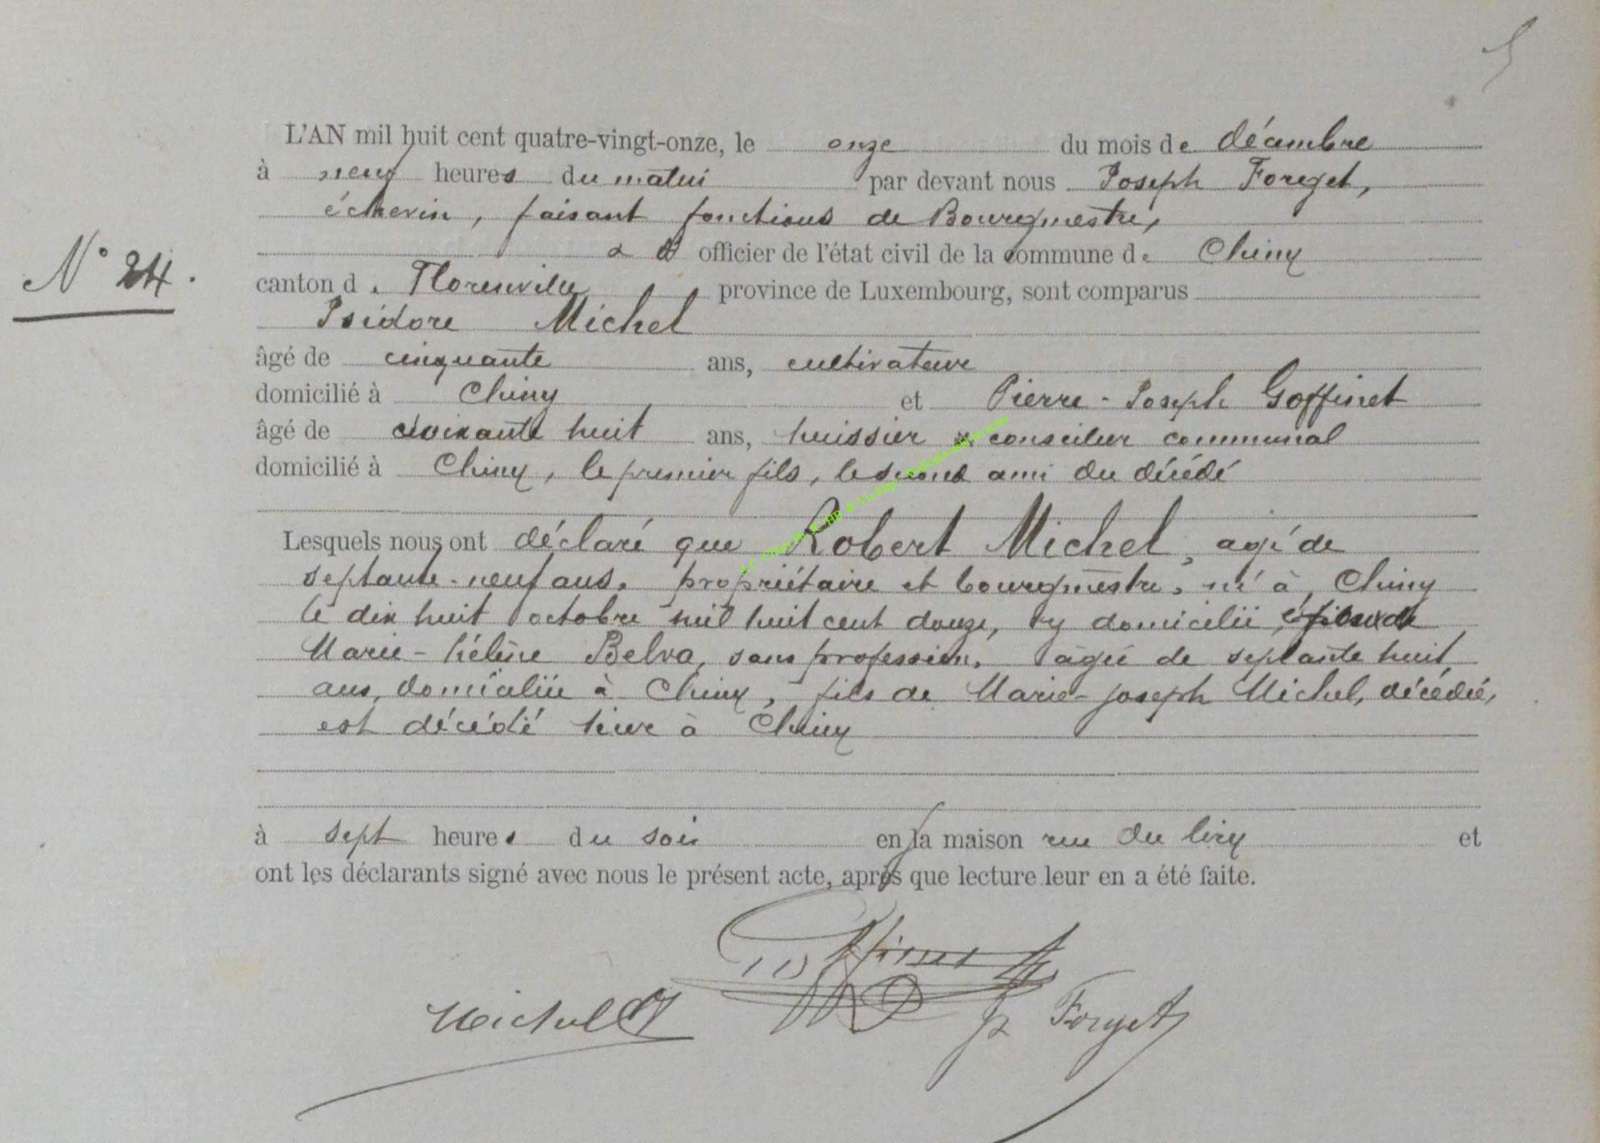 L'AN mil huit cent quatre-vingt-onze, le onze du mois de décembre
à neuf heures du matin par devant nous Joseph Forget,
échevin, faisant fonctions de Bourgmestre,
officier de l'état civil de la commune de Chiny
N° 24.
canton de Florenville province de Luxembourg, sont comparus
Isidore Michel
âgé de cinquante ans, cultivateur
domicilié à Chiny et Pierre-Joseph Goffinet
âgé de soixante huit ans, huissier & conseiller communal
domicilié à Chiny, le premier fils, le second ami du décédé
Lesquels nous ont déclaré que Robert Michel, agé de
septante-neuf ans, propriétaire et bourgmestre, né à Chiny
le dix huit octobre mil huit cent douze, y domicilié, époux de
Marie-hélène Belva, sans profession, âgée de septante huit
ans, domiciliée à Chiny, fils de Marie-joseph Michel, décédée,
est décédé hier à Chiny
à sept heures du soir en sa maison rue du
et
ont les déclarants signé avec nous le présent acte, après que lecture leur en a été faite.
Goffinet
Michel
J Forget